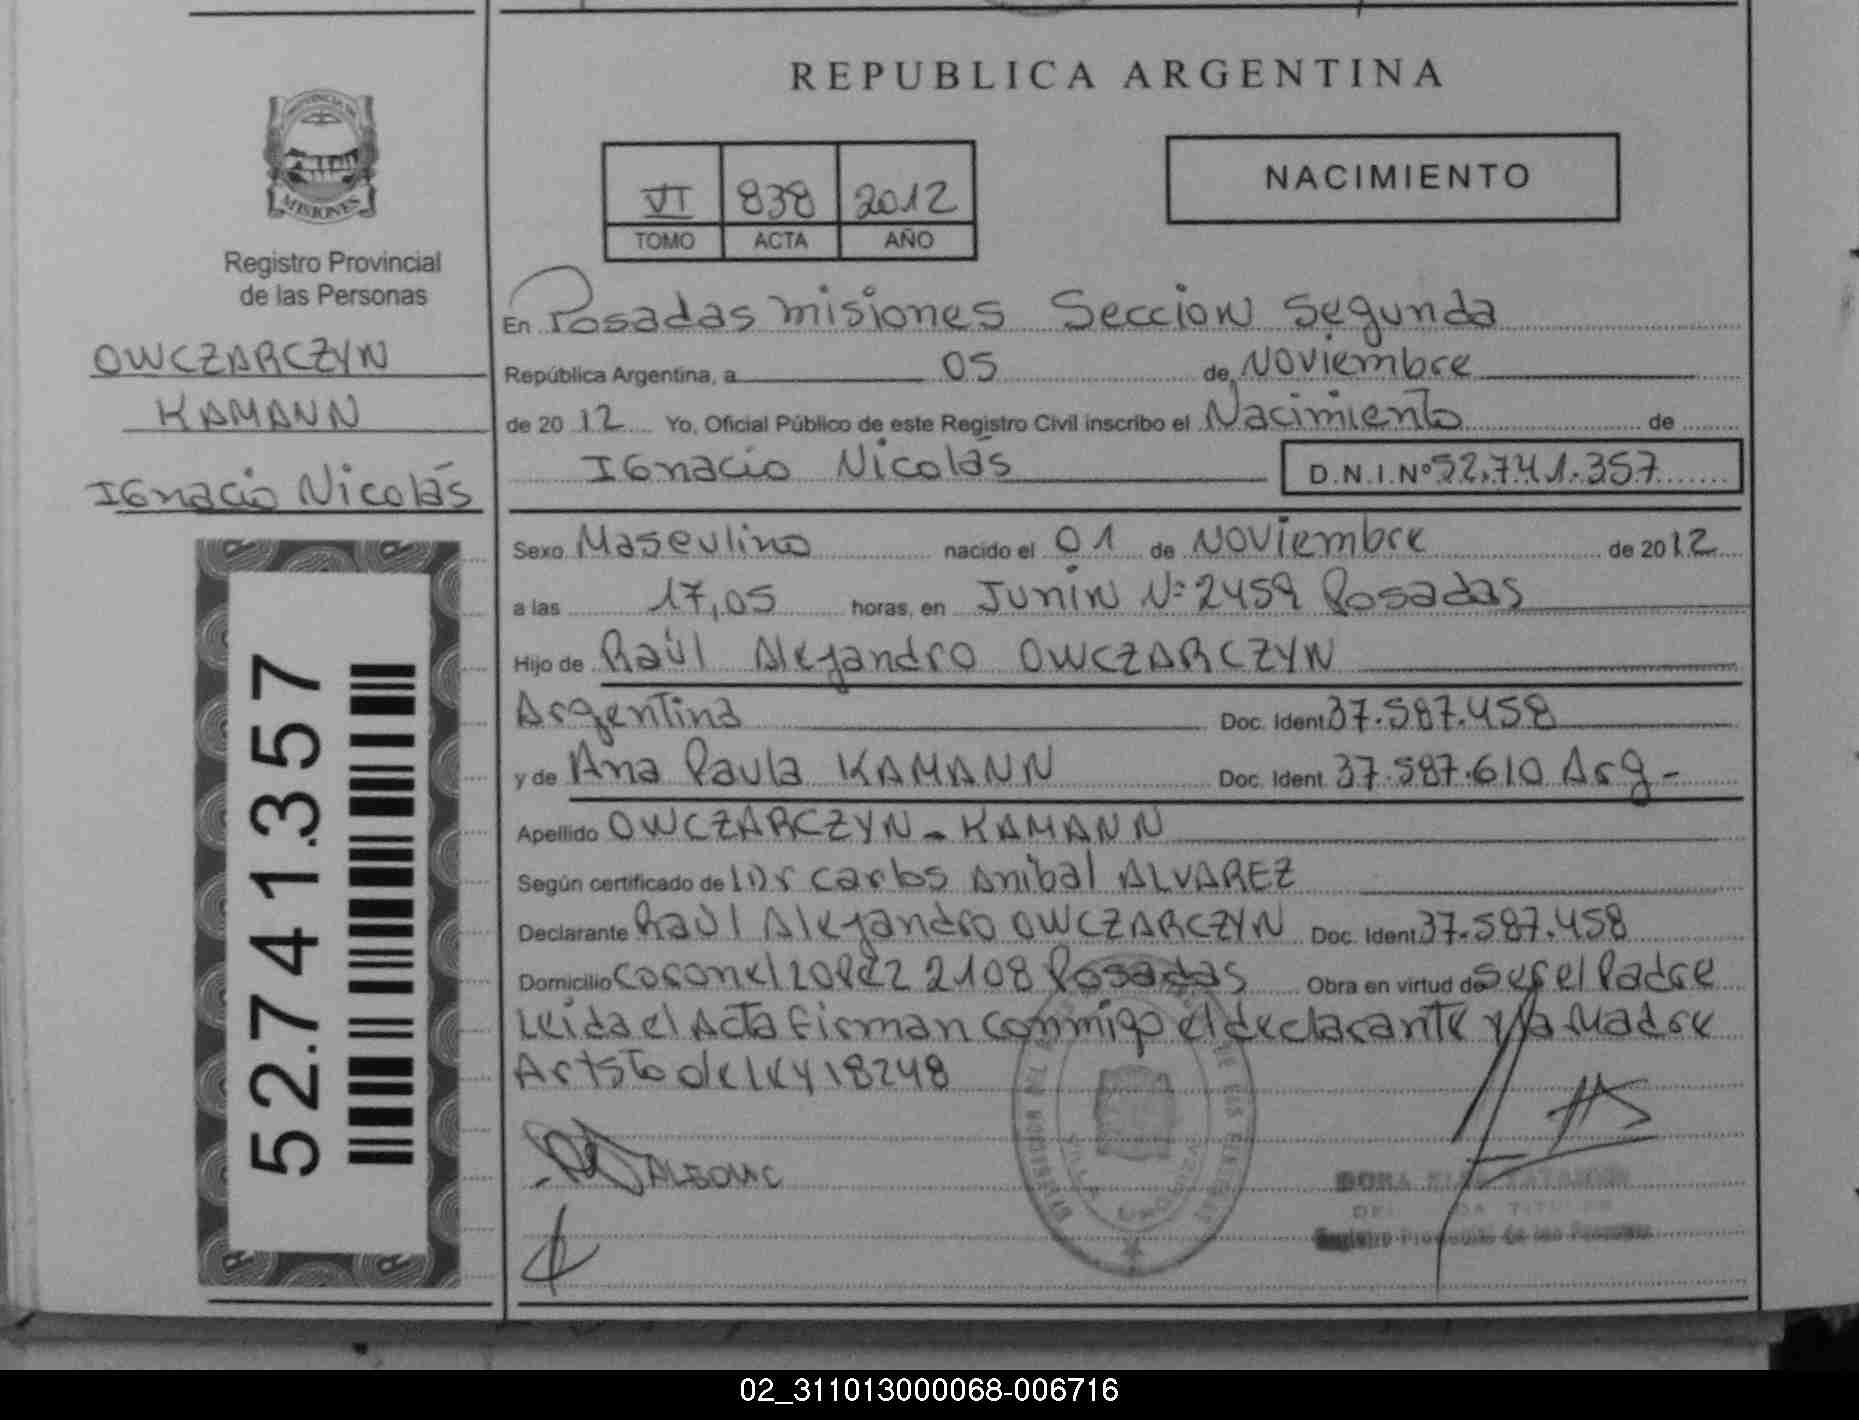 REPUBLICA ARGENTINA
PROVINCIA DE
MISIONES
Registro Provincial
de las Personas
OWCZARCZYN
KAMANN
IGnacio Nicolás
52.741.357
VI 838 2012
TOMO ACTA AÑO
NACIMIENTO
En Posadas misiones Seccion Segunda
República Argentina, a 05 de Noviembre
de 2012 Yo, Oficial Público de este Registro Civil inscribo el Nacimiento de
IGnacio Nicolás D.N.I.Nº 52.741.357
Sexo Masculino nacido el 01 de Noviembre de 2012
a las 17,05 horas, en Junin Nº 2459 Posadas
Hijo de Raúl Alejandro OWCZARCZYN
Argentina Doc. Ident 37.587.458
y de Ana Paula KAMANN Doc. Ident. 37.587.610 Arg-
Apellido OWCZARCZYN - KAMANN
Según certificado de Dr Carlos Anibal ALVAREZ
Declarante Raúl Alejandro OWCZARCZYN Doc. Ident 37.587.458
Domicilio Coronel Lopez 2108 Posadas Obra en virtud de ser el Padre
Leida el Acta firman conmigo el declarante y la Madre
Art 5to de Ley 18248
Registro Provincial de las Personas
02_311013000068-006716